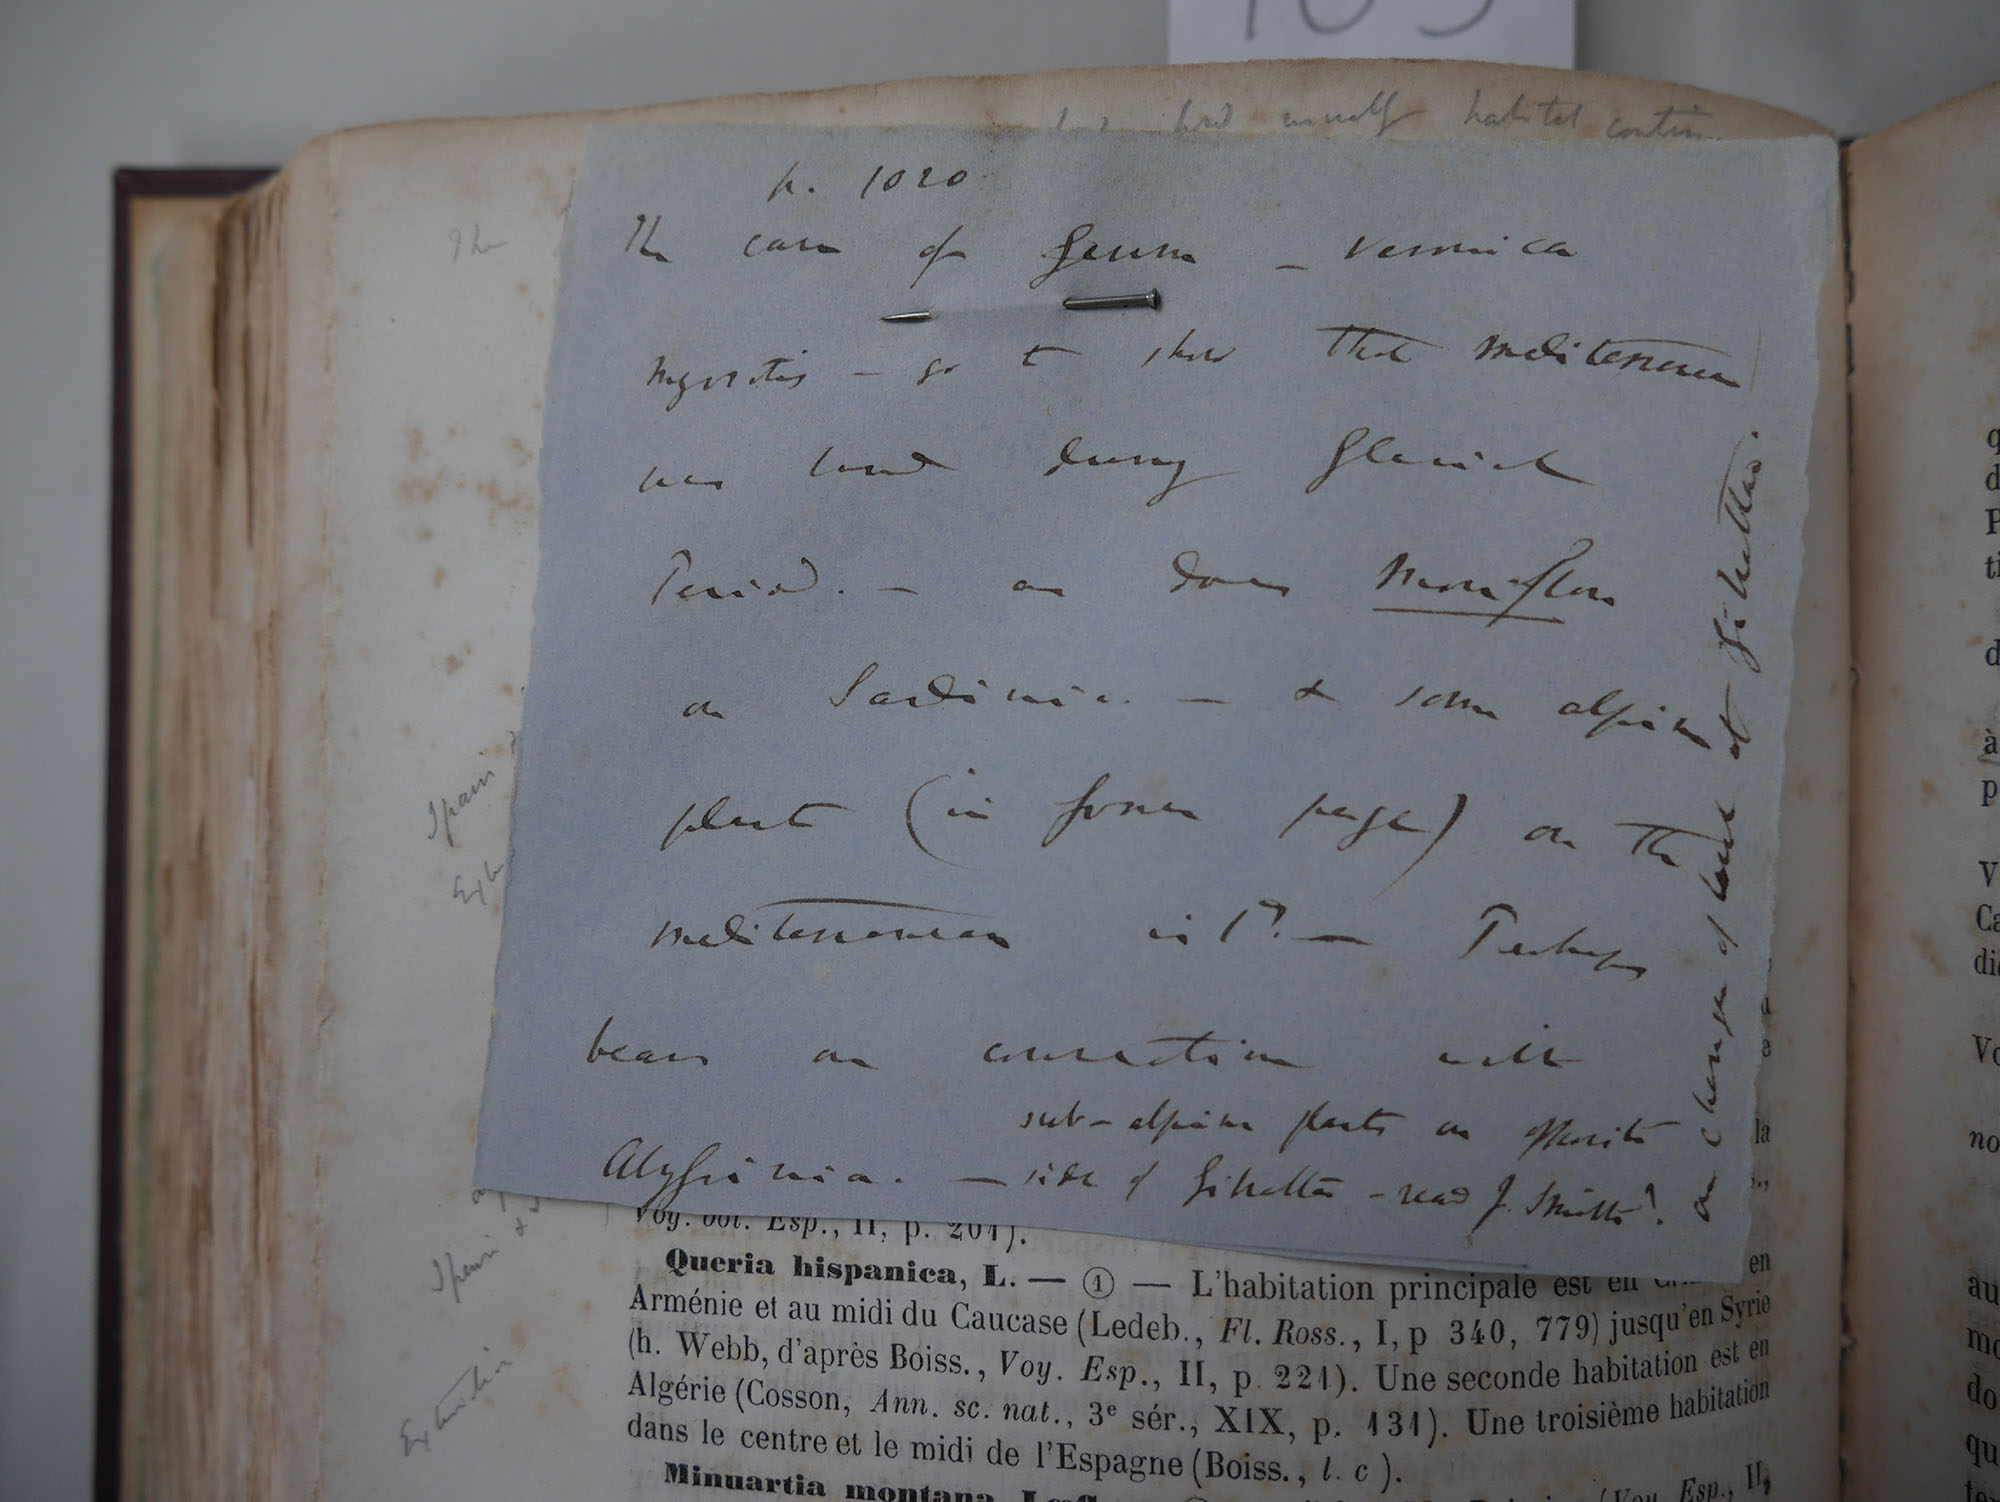 103
habitat contin
p. 1020
The case of Geum – Veronica
Myosotis – go to show that Mediterranean
was land during Glacial
Period. – as does Mouflon
on Sardinia. – & some alpine
plants (in former page) on the
Mediterranean isld? – Perhaps
bears on connection with
sub-alpine plants on opposite
Abyssinia. – side of Gibraltar – read J. Smith?
on change of land at Gibraltar.
The
Spain
Spain &
Extinction
Voy. bot. Esp., II, p. 201).
Queria hispanica, L. — ① — L'habitation principale est en en
Arménie et au midi du Caucase (Ledeb., Fl. Ross., I, p 340, 779) jusqu'en Syrie
(h. Webb, d'après Boiss., Voy. Esp., II, p. 221). Une seconde habitation est en
Algérie (Cosson, Ann. sc. nat., 3e sér., XIX, p. 131). Une troisième habitation
dans le centre et le midi de l'Espagne (Boiss., l. c ).
Minuartia montana, Voy. Esp., II,
la
q
d
P
ti
d
à
p
V
Ca
di
Vo
no
au
mo
do
qu